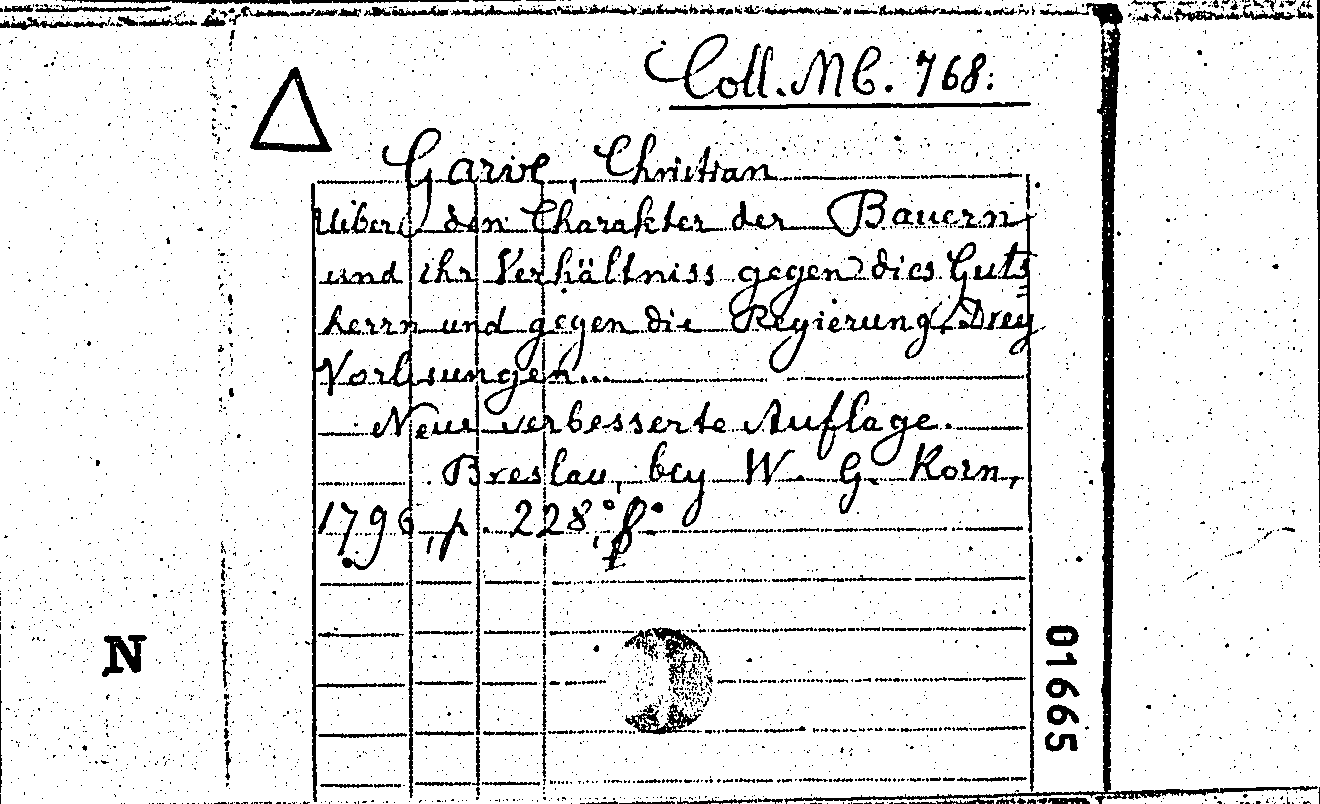 Coll. MC. 768.
Garve, Christian
Ueber den Charakter der Bauern
und ihr Verhältniss gegen die Guts
herrn und gegen die Regierung. Drey
Vorlesungen...
Neue verbesserte Auflage.
Breslau, bey W. G. Korn,
1796, p. 228,
N
01665